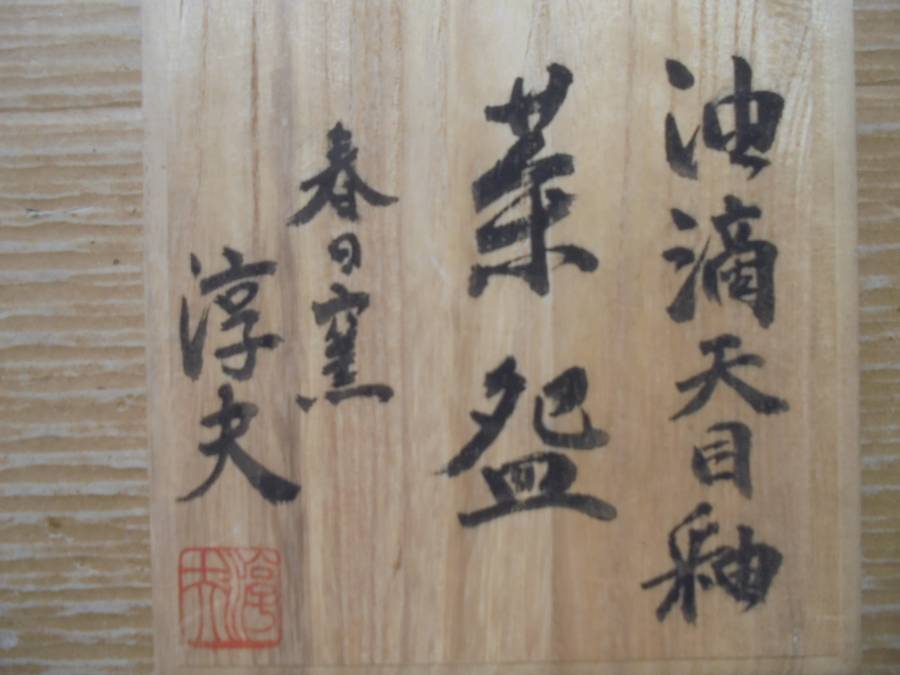 油滴天目釉
茶盌
春日窯
淳夫
淳夫